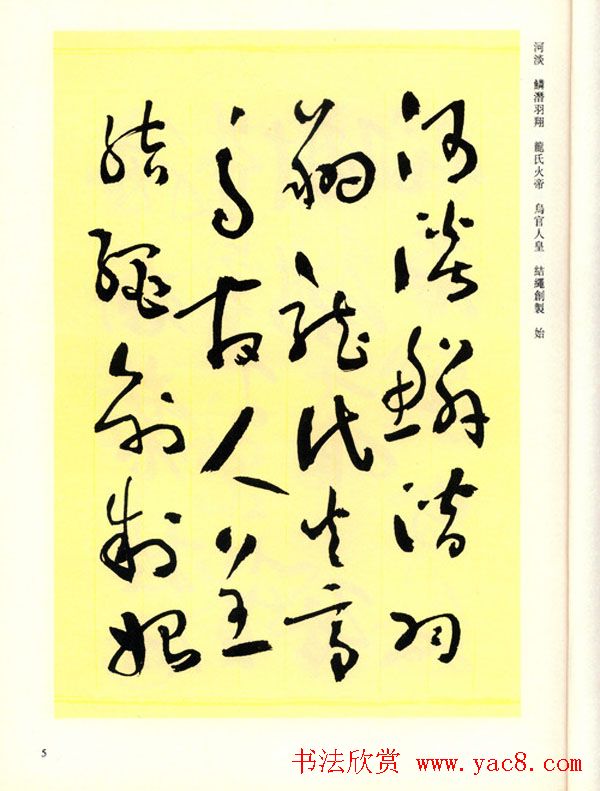 河淡 鱗潛羽翔 龍氏火帝 鳥官人皇 結繩創製 始
河淡鱗潛羽
翔龍氏火帝
鳥官人皇
結繩創制始
5
书法欣赏 www.yac8.com